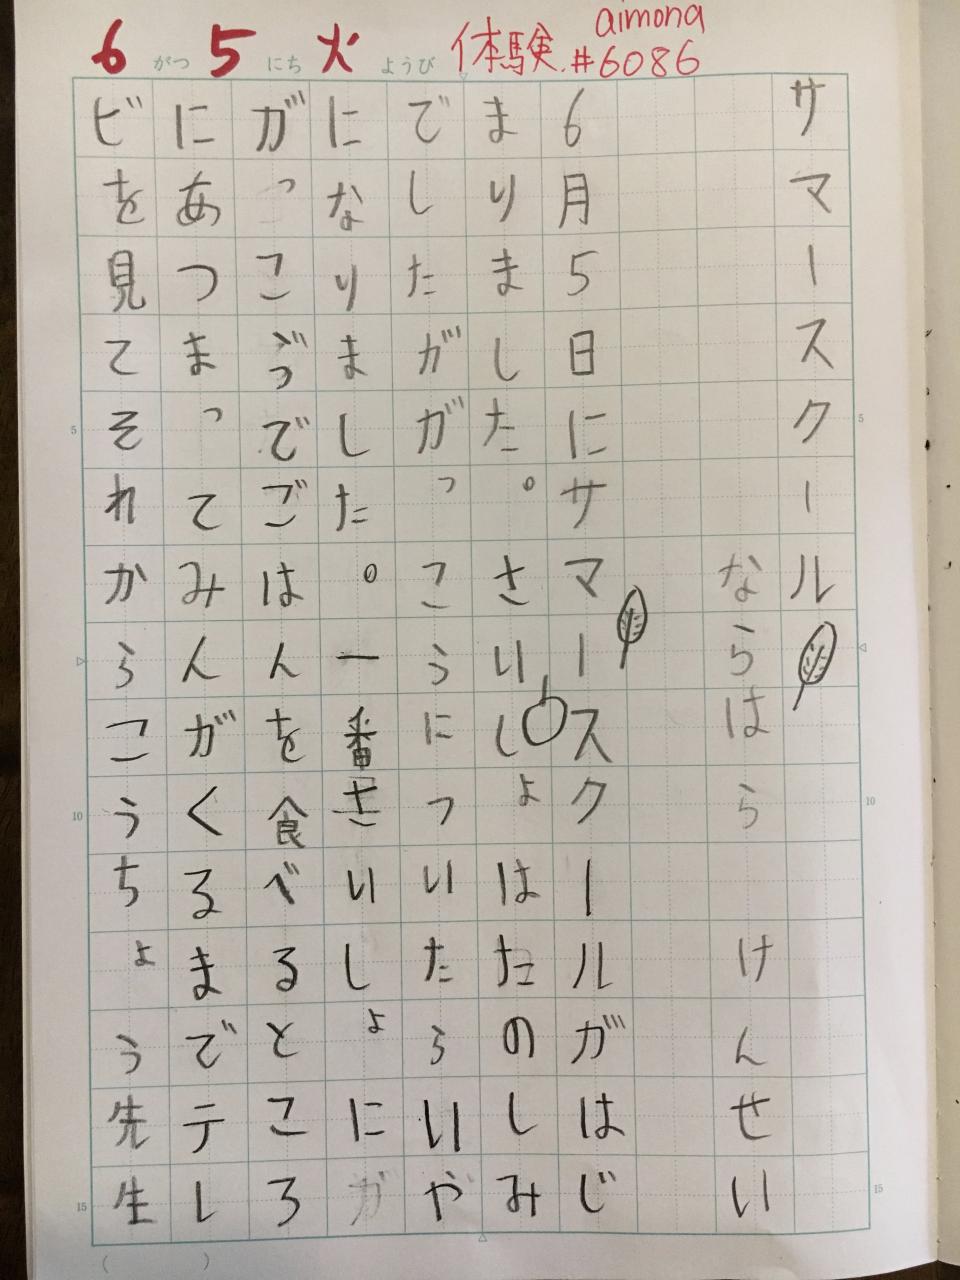 6 がつ 5 にち 火 ようび 体験 aimona #6086
サマースクール
ならはら けんせい
6月5日にサマースクールがはじ
まりました。さいしょはたのしみ
でしたががっこうについたらいや
になりました。一番さいしょに
がっこゔでごはんを食べるところ
にあつまってみんがくるまでテレ
ビを見てそれからこうちょう先生
5
10
15
5
10
15
(　　)